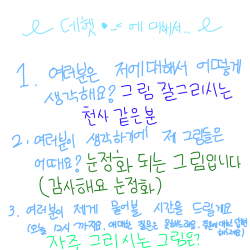 데헷 •͈ᴗ•͈ 에 대해서..
1. 여러분은 저에대해서 어떻게
생각해요? 그림 잘그리시는
천사 같은분
2. 여러분이 생각하기에 제 그림들은
어때요? 눈정화 되는 그림입니다
(감사해요 눈정화)
3. 여러분이 제게 물어볼 시간을 드릴게요
(오늘 다시 까지요.
자주 그리시는 그림은?